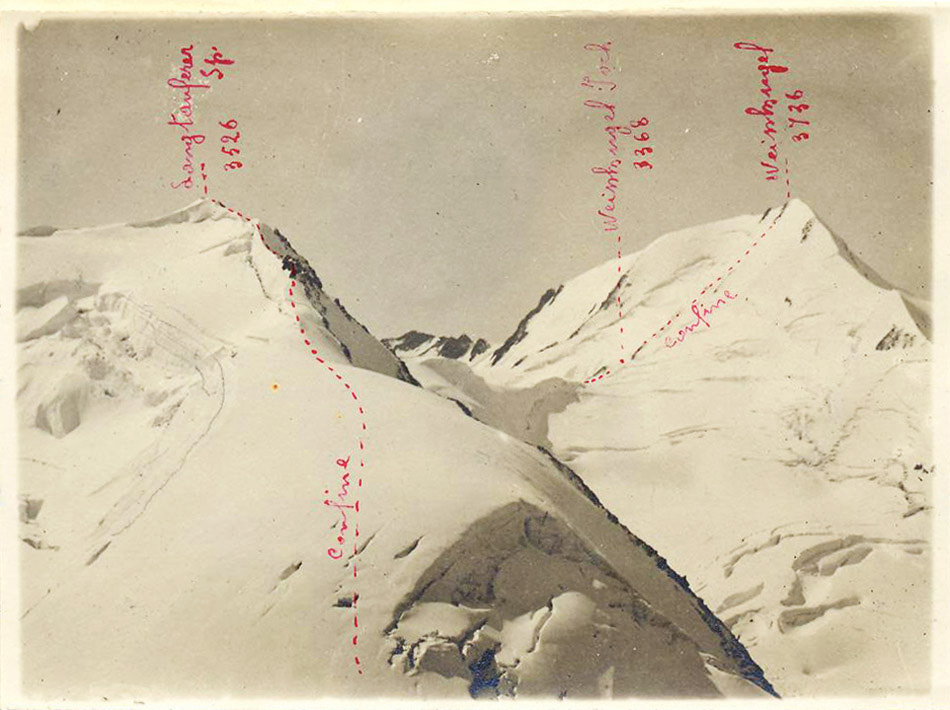 Langtauferer
Sp.
3526
Weisskugel Joch
3368
Weisskugel
3736
confine
confine